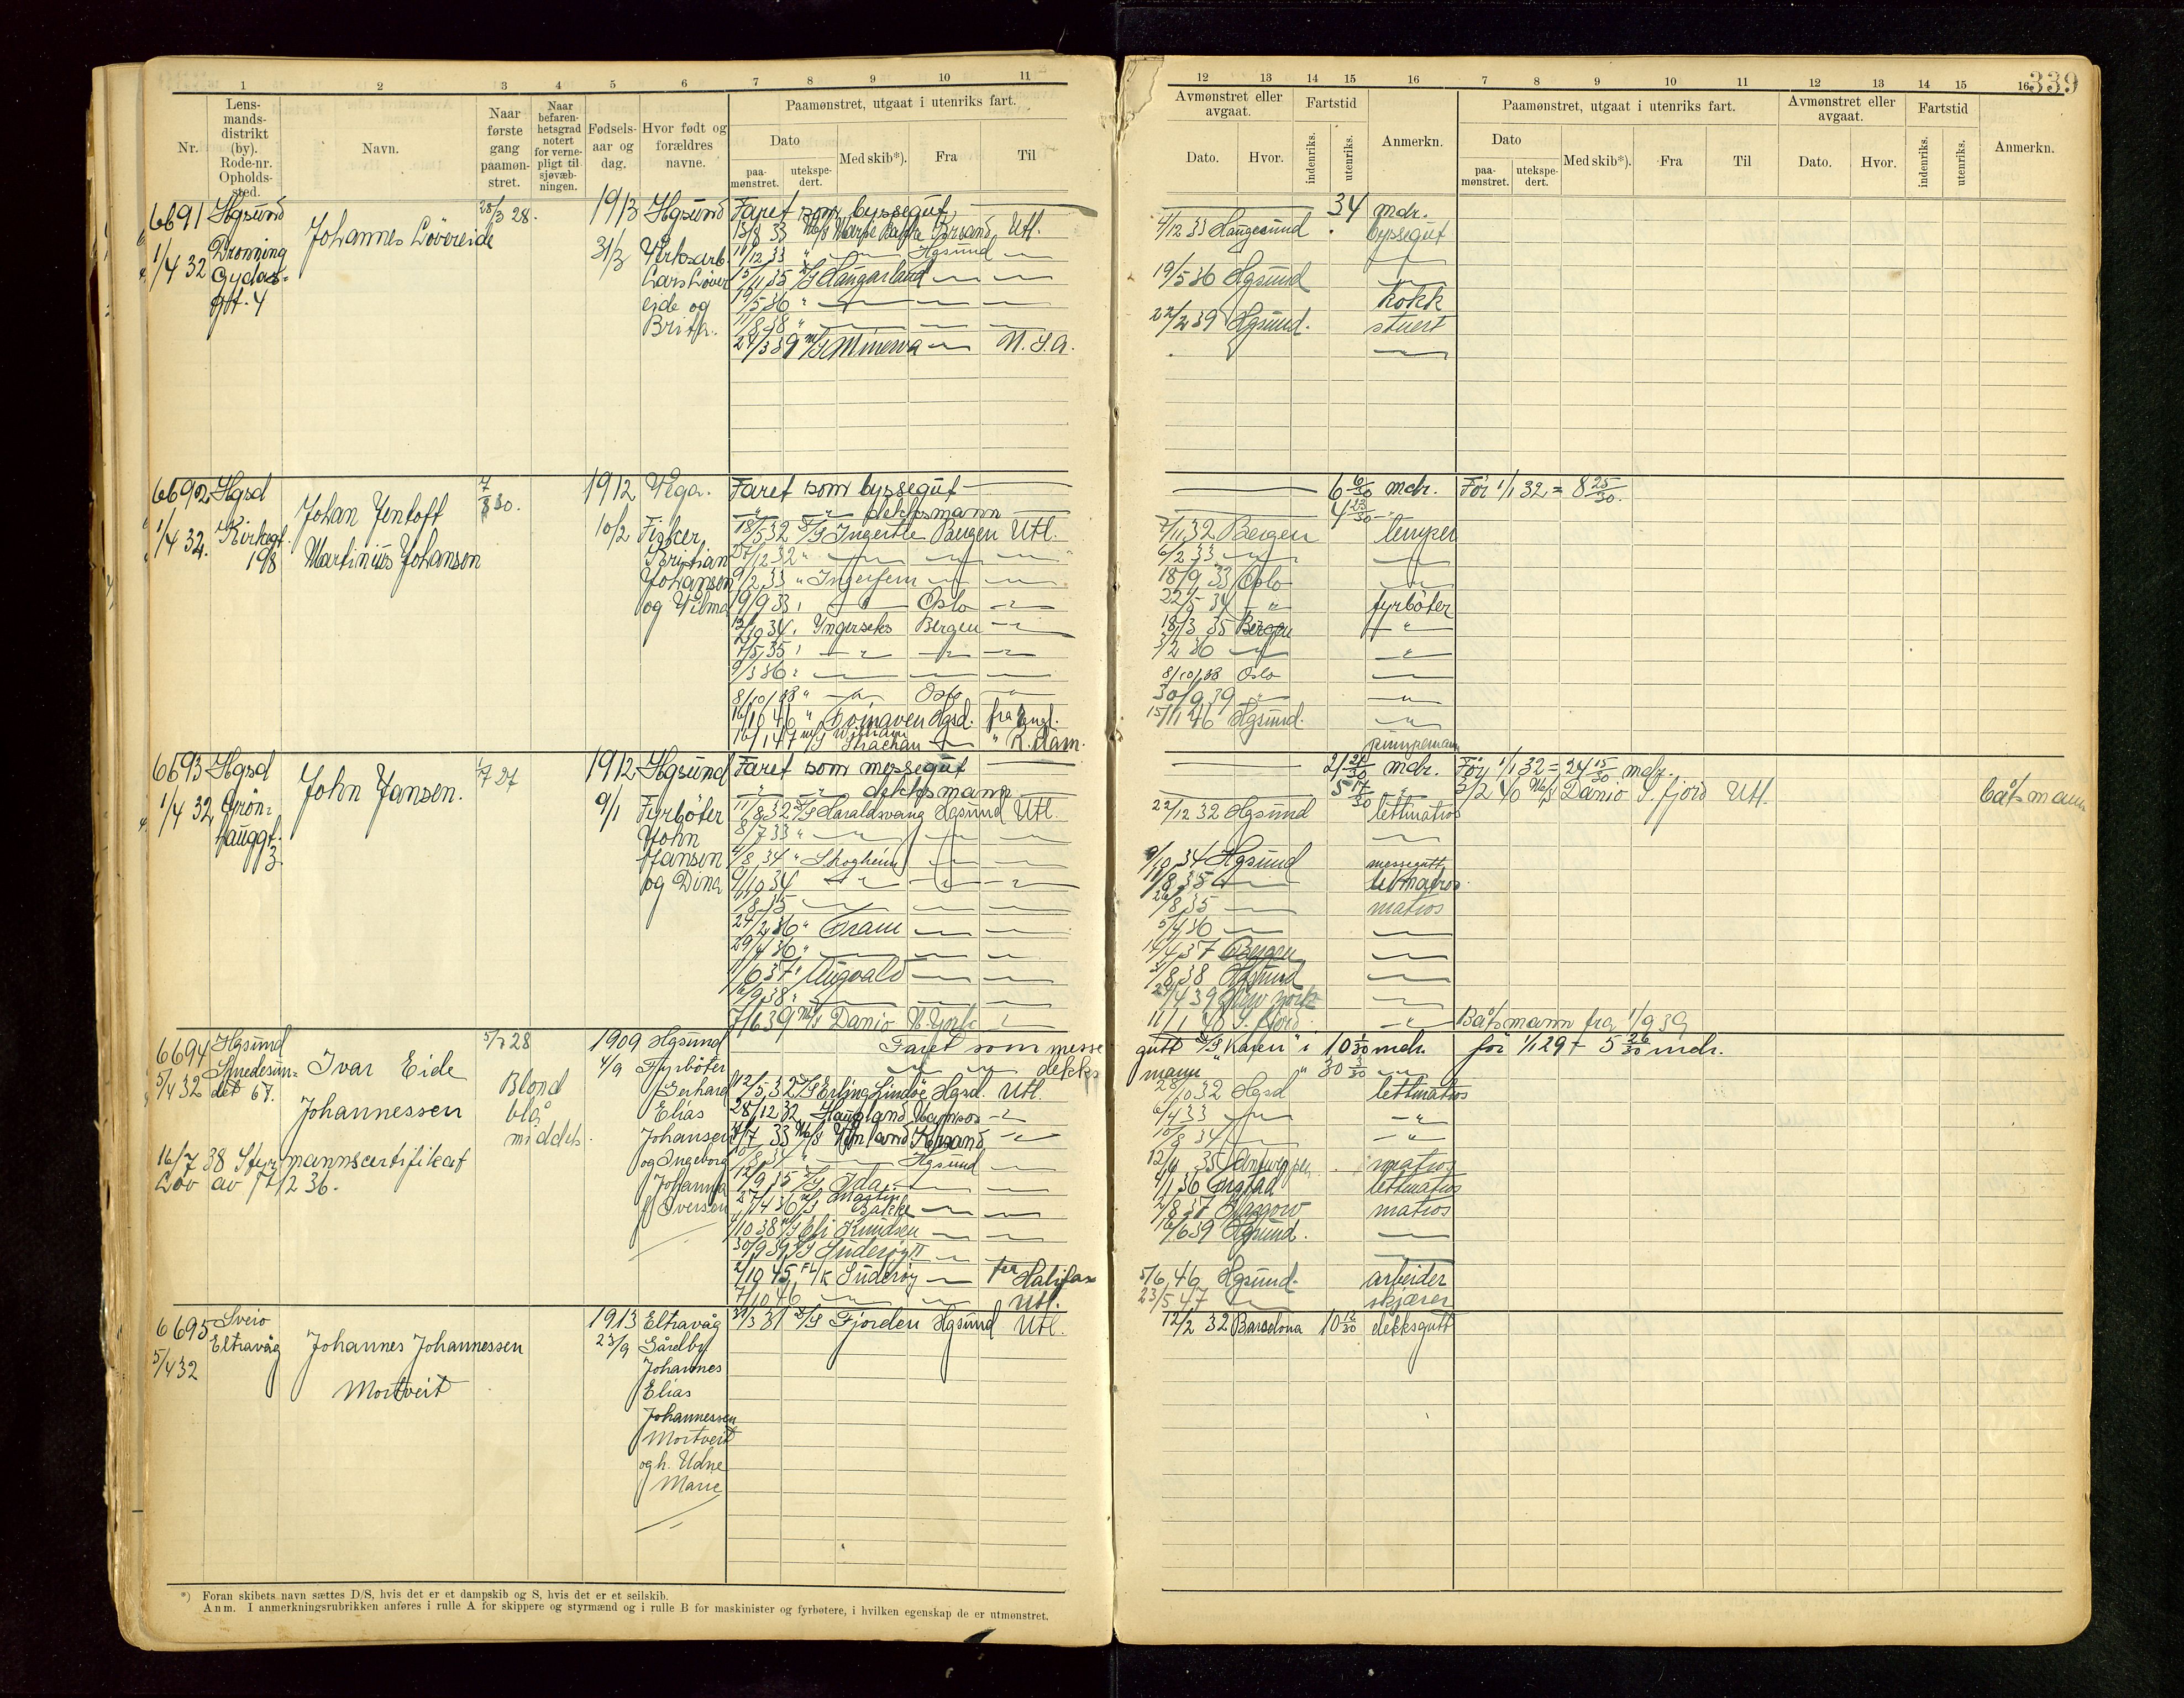 339
1 2 3 4 5 6 7 8 9 10 11
Nr.
Lens-
mands-
distrikt
(by).
Rode-nr.
Opholds-
sted.
Navn.
Naar
første
gang
paamøn-
stret.
Naar
befaren-
hetsgrad
notert
for verne-
pligt til
sjøvæb-
ningen.
Fødsels-
aar og
dag.
Hvor født og
forældres
navne.
Paamønstret, utgaat i utenriks fart.
Dato
paa-
mønstret.
utekspe-
dert.
Med skib*).
Fra
Til
12 13 14 15 16 7 8 9 10 11 12 13 14 15 16
Avmønstret eller
avgaat.
Dato.
Hvor.
Fartstid
indenriks.
utenriks.
Anmerkn.
Paamønstret, utgaat i utenriks fart.
Dato
paa-
mønstret.
utekspe-
dert.
Med skib*).
Fra
Til
Avmønstret eller
avgaat.
Dato.
Hvor.
Fartstid
indenriks.
utenriks.
Anmerkn.
6691 Hgsund
1/4 32 Dronning
Gydas-
gt. 4
Johannes Lövereide
28/3 28.
1913 Hgsund
31/3 Verksarb.
Lars Löver
eide og
Brita.
Faret som byssegut 34 mdr.
13/8 33 Utl. 4/12 33 Haugesund byssegut
11/12 33 " Hgsund
15/11 35 Haugarland 19/5 36 Hgsund
19/5 36 " kokk
11/8 38 " 22/2 39 Hgsund. stuert
24/3 39 Minerva U.S.A.
6692 Hgsd
1/4 32. Kirkegt.
198
Johan Jentoft
Martinius Johansen
7/8 30.
1912 Vega.
10/2 Fisker
Kristian
Johansen
og Vilma
Faret som byssegut 6 6/30 mdr. Før 1/1 32 = 8 25/30.
" " dekksmann 4 23/30 "
18/5 32 D/S Ingertle Bergen Utl. 7/11 32 Bergen lemper
27/12 32 " 6/2 33
9/2 33 " Ingerfem 18/9 33 Oslo
19/9 33 " Oslo 22/5 34 " fyrböter
12/10 34 " Ingerseks Bergen 18/3 35 Bergen "
7/5 35 " 3/2 36
9/3 36 " 8/10/38 Oslo
8/10/38 " Oslo 30/9 39 "
16/10 46 " Hgsd. fra Engl. 15/11 46 Hgsund.
16/1 47 William
Strachan " R.dam. pumpemann
6693 Hgsd
1/4 32 Grøn-
hauggt.
3
John Jansen.
1912 Hgsund
9/1 Fyrböter
John
Jansen
og Dina
Faret som messegut 21 21/30 mdr. Før 1/1 32 = 24 15/30 mdr.
" " dekksmann 5 17/30 " 3/2 40 M/S Danio S. fjord Utl. båtsmann
11/8 32 D/S Haraldsvang Hgsund Utl. 22/12 32 Hgsund lettmatros
8/7 33 "
4/8 34 " Skogheim 9/10 34 Hgsund messegutt
9/10 34 11/8 35 letmatros
1/8 35 26/8 35 matros
24/2 36 " Fram 5/4 36
29/4 36 " 14/4 37 Bergen
1/6 37 " Augvald 3/8 38 Hgsund
16/9 38 " 29/4 39 New York
7/6 39 M/S Danio N. York 11/1 40 S. fjord " Båtsmann fra 1/9 39
6694 Hgsund
5/4 32 Smedesun-
det 67.
Ivar Eide
Johannessen
5/7 28
Blond
blå
middels.
16/7 38 Styrmannscertifikat
Lov av 7/2 36.
1909 Hgsund
4/9 Fyrböter
Gerhard
Elias
Johansen
og Ingeborg
Johanna
Iversen
Faret som messe
gutt D/S "Karen" i 10 mdr. før 1/1 29 + 5 26/30 mdr.
dekks
mann " 30 3/30
12/5 32 D/S Erling Lindöe Hgsd. Utl. 28/10 32 Hgsd lettmatros
28/12 32 Haugland Namsos 6/4 33 "
7/7 33 M/S Vinland Krsand 10/8 34 "
8 34 " Hgsund 12/6 35 Antwerpen matros
12/9 35 D/S Ida 4/1 36 lettmatros
27/4 36 M/S Martin
Bakke 7/8 37 Glasgow matros
10 38 Eli Knudsen 16/6 39 Hgsund.
30/9 39 D/S Suderøy II
2/10 45 Fl/k Suderøy fra Halifax 5/6 46 Hgsund. arbeider
7/10 46 Utl. 23/5 47 skjærer
6695 Sveio
5/4 32 Eltravåg
Johannes Johannessen
Mortveit
1913 Eltravåg
23/9 Gårdbr.
Johannes
Elias
Johannessen
Mortveit
og h. Udne
Marie
31/3 31 D/S Fjorden Hgsund Utl. 12/2 32 Barcelona 10 12/30 dekksgutt
*) Foran skibets navn sættes D/S, hvis det er et dampskib og S, hvis det er et seilskib.
Anm. I anmerkningsrubrikken anføres i rulle A for skippere og styrmænd og i rulle B for maskinister og fyrbøtere, i hvilken egenskap de er utmønstret.